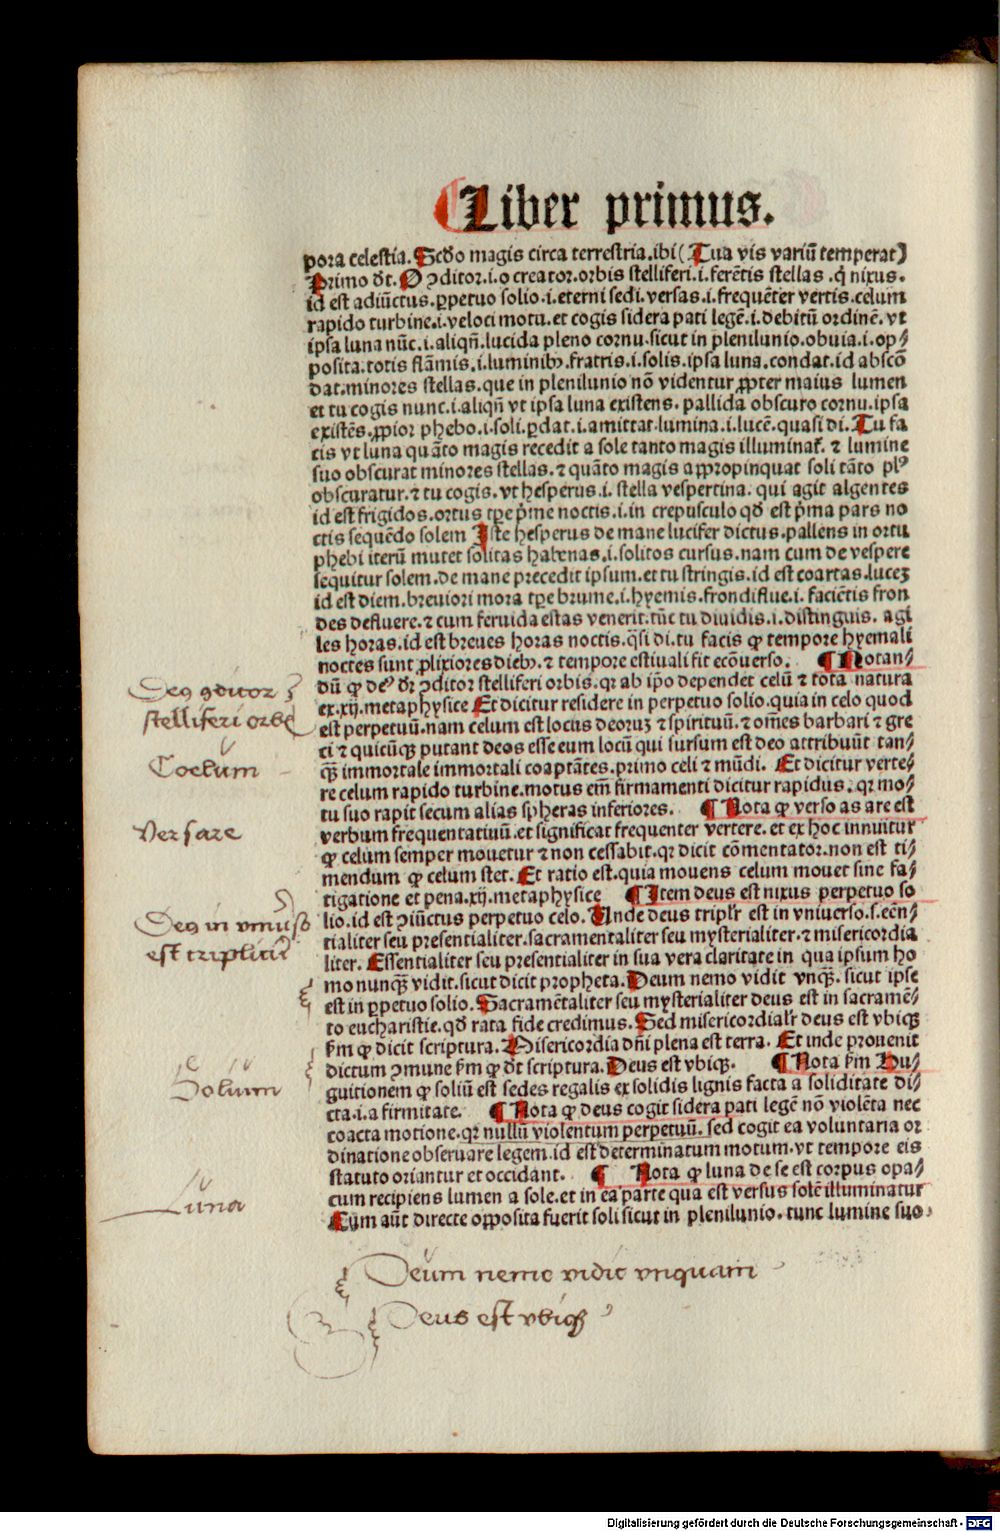 Liber primus.
pora celestia. Scd̄o magis circa terrestria. ibi (Tua vis variū temperat)
Primo d̄t. O ꝯditor .i. o creator. orbis stelliferi .i. ferētis stellas. q̇ nixus.
id est adiūctus. ꝑpetuo solio .i. eterni sedi. versas .i. frequēter vertis. celum
rapido turbine .i. veloci motu. et cogis sidera pati legē .i. debitū ordinē. vt
ipsa luna nūc .i. aliqñ. lucida pleno cornu. sicut in plenilunio. obuia .i. op⸗
posita. totis flāmis .i. luminibꝰ. fratris .i. solis. ipsa luna. condat. id abscō
dat. minores stellas. que in plenilunio nō videntur ꝓpter maius lumen
et tu cogis nunc .i. aliqñ vt ipsa luna existens. pallida obscuro cornu. ipsa
existēs. ꝓpior phebo .i. soli. ꝑdat .i. amittat. lumina .i. lucē. quasi di. Tu fa
cis vt luna quāto magis recedit a sole tanto magis illuminat̄. ⁊ lumine
suo obscurat minores stellas. ⁊ quāto magis aꝓpropinquat soli tāto plꝰ
obscuratur. ⁊ tu cogis. vt hesperus .i. stella vespertina. qui agit algentes
id est frigidos. ortus tp̄e p̄me noctis .i. in crepusculo qd̄ est p̄ma pars no
ctis sequēdo solem Iste hesperus de mane lucifer dictus. pallens in ortu
phebi iterū mutet solitas habenas .i. solitos cursus. nam cum de vespere
sequitur solem. de mane precedit ipsum. et tu stringis. id est coartas. luceꝫ
id est diem. breuiori mora tp̄e brume .i. hyemis. frondiflue .i. faciētis fron
des defluere. ⁊ cum feruida estas venerit. tūc tu diuidis .i. distinguis. agi
les horas. id est breues horas noctis. q̄si di. tu facis ꝙ tempore hyemali
noctes sunt ꝓlixiores diebꝰ. ⁊ tempore estiuali fit ecōuerso. ¶ Notan⸗
dū ꝙ deꝰ d̄r ꝯditor stelliferi orbis. qꝛ ab ip̄o dependet celū ⁊ tota natura
ex .xij. metaphysice Et dicitur residere in perpetuo solio. quia in celo quod
est perpetuū. nam celum est locus deoruꝫ ⁊ spirituū. ⁊ om̄es barbari ⁊ gre
ci ⁊ quicūqꝫ putant deos esse eum locū qui sursum est deo attribuūt tan⸗
q̄ꝫ immortale immortali coaptātes. primo celi ⁊ mūdi. Et dicitur verte⸗
re celum rapido turbine. motus em̄ firmamenti dicitur rapidus. qꝛ mo⸗
tu suo rapit secum alias spheras inferiores. ¶ Nota ꝙ verso as are est
verbum frequentatiuū. et significat frequenter vertere. et ex hoc innuitur
ꝙ celum semper mouetur ⁊ non cessabit. qꝛ dicit cōmentator. non est ti⸗
mendum ꝙ celum stet. Et ratio est. quia mouens celum mouet sine fa⸗
tigatione et pena .xij. metaphysice ¶ Item deus est nixus perpetuo so
lio. id est ꝯiūctus perpetuo celo. Unde deus triplr̄ est in vniuerso. s. eēn⸗
tialiter seu presentialiter. sacramentaliter seu mysterialiter. ⁊ misericordia
liter. Essentialiter seu presentialiter in sua vera claritate in qua ipsum ho
mo nunq̄ꝫ vidit. sicut dicit propheta. Deum nemo vidit vnq̄ꝫ. sicut ipse
est in ꝑpetuo solio. Sacramētaliter seu mysterialiter deus est in sacramē⸗
to eucharistie. qd̄ rata fide credimus. Sed misericordialr̄ deus est vbiqꝫ
ẜm ꝙ dicit scriptura. Misericordia dn̄i plena est terra. Et inde prouenit
dictum ꝯmune ẜm ꝙ d̄t scriptura. Deus est vbiqꝫ. ¶ Nota ẜm Hu⸗
guitionem ꝙ soliū est sedes regalis ex solidis lignis facta a soliditate di⸗
cta .i. a firmitate. ¶ Nota ꝙ deus cogit sidera pati legē nō violēta nec
coacta motione. qꝛ nullū violentum perpetuū. sed cogit ea voluntaria or
dinatione obseruare legem. id est determinatum motum. vt tempore eis
statuto oriantur et occidant. ¶ Nota ꝙ luna de se est corpus opa⸗
cum recipiens lumen a sole. et in ea parte qua est versus solē illuminatur
Cum aūt directe opposita fuerit soli sicut in plenilunio. tunc lumine suo
Deꝯ ꝯditor
stelliferi orbꝭ
Coelum
Versare
Deꝯ in vniuerso
est tripliciter
Solium
Luna
Deum nemo vidit vnquam
Deus est vbiqꝫ
Digitalisierung gefördert durch die Deutsche Forschungsgemeinschaft - DFG